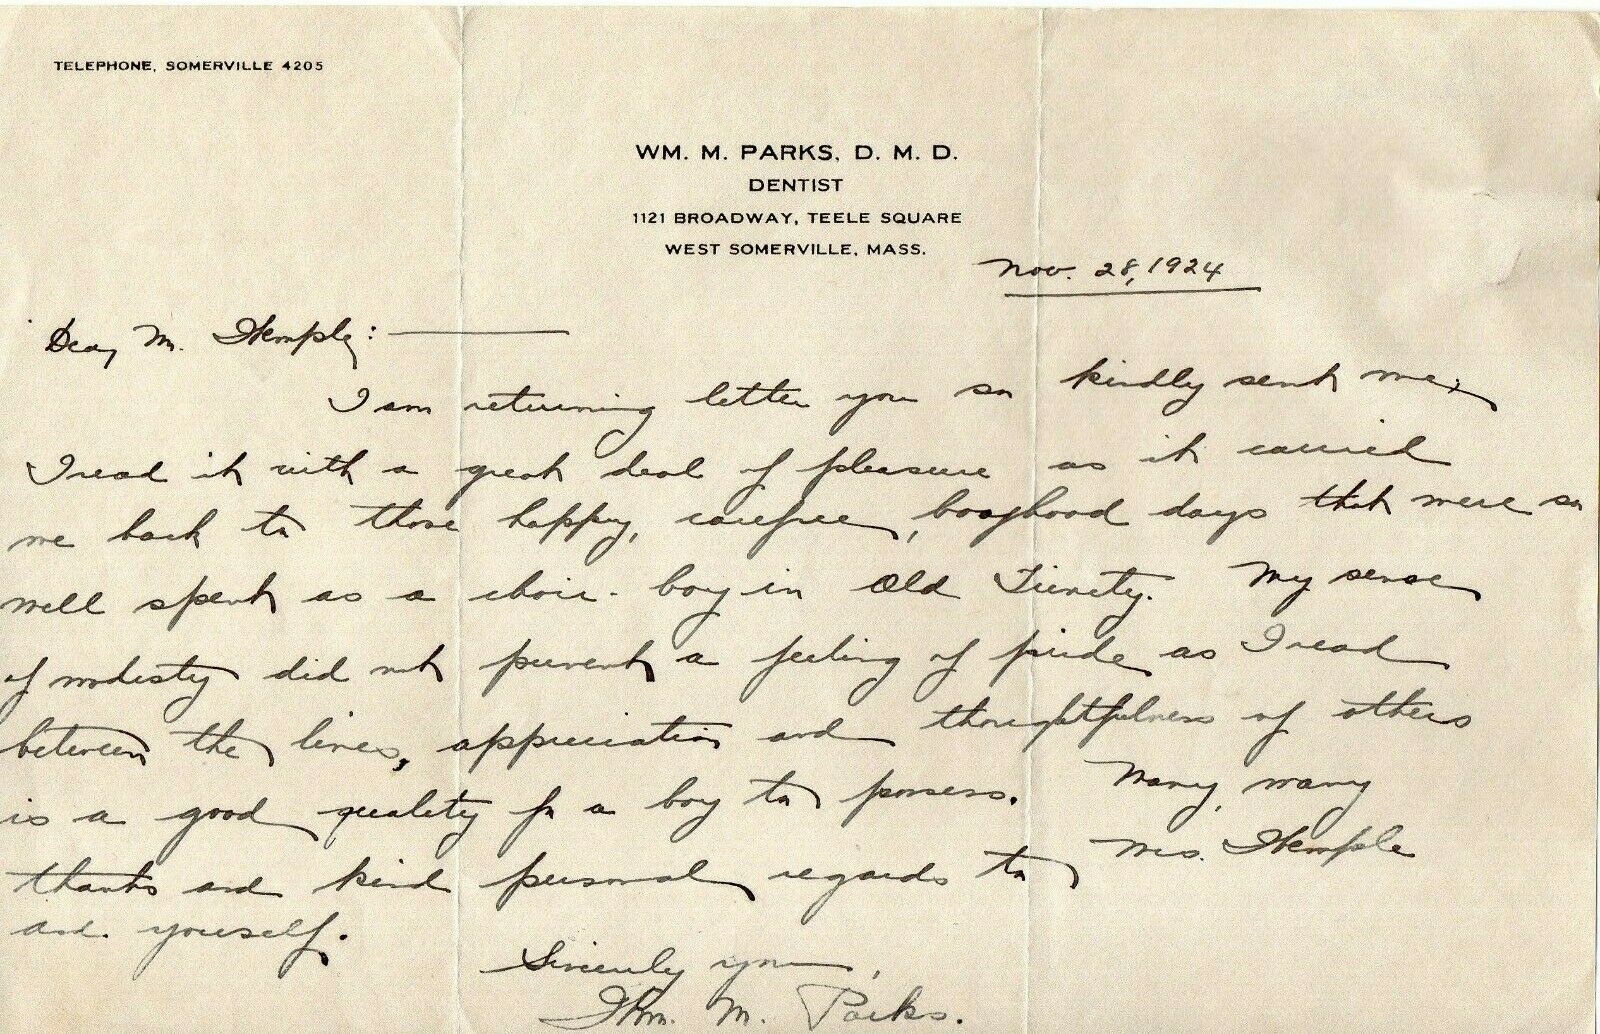 TELEPHONE, SOMERVILLE 4205
WM. M. PARKS, D. M. D.
DENTIST
1121 BROADWAY, TEELE SQUARE
WEST SOMERVILLE, MASS.
Nov. 28, 1924
Dear Mr. Hemple:
I am returning letter you so kindly sent me,
I read it with a great deal of pleasure as it carried
me back to those happy, carefree, boyhood days that were so
well spent as a choir-boy in Old Trinity. My sense
of modesty did not prevent a feeling of pride as I read
between the lines, appreciation and thoughtfulness of others
is a good quality for a boy to possess. Many, many
thanks and kind personal regards to Mrs. Hemple
and yourself.
Sincerely yours,
Wm. M. Parks.